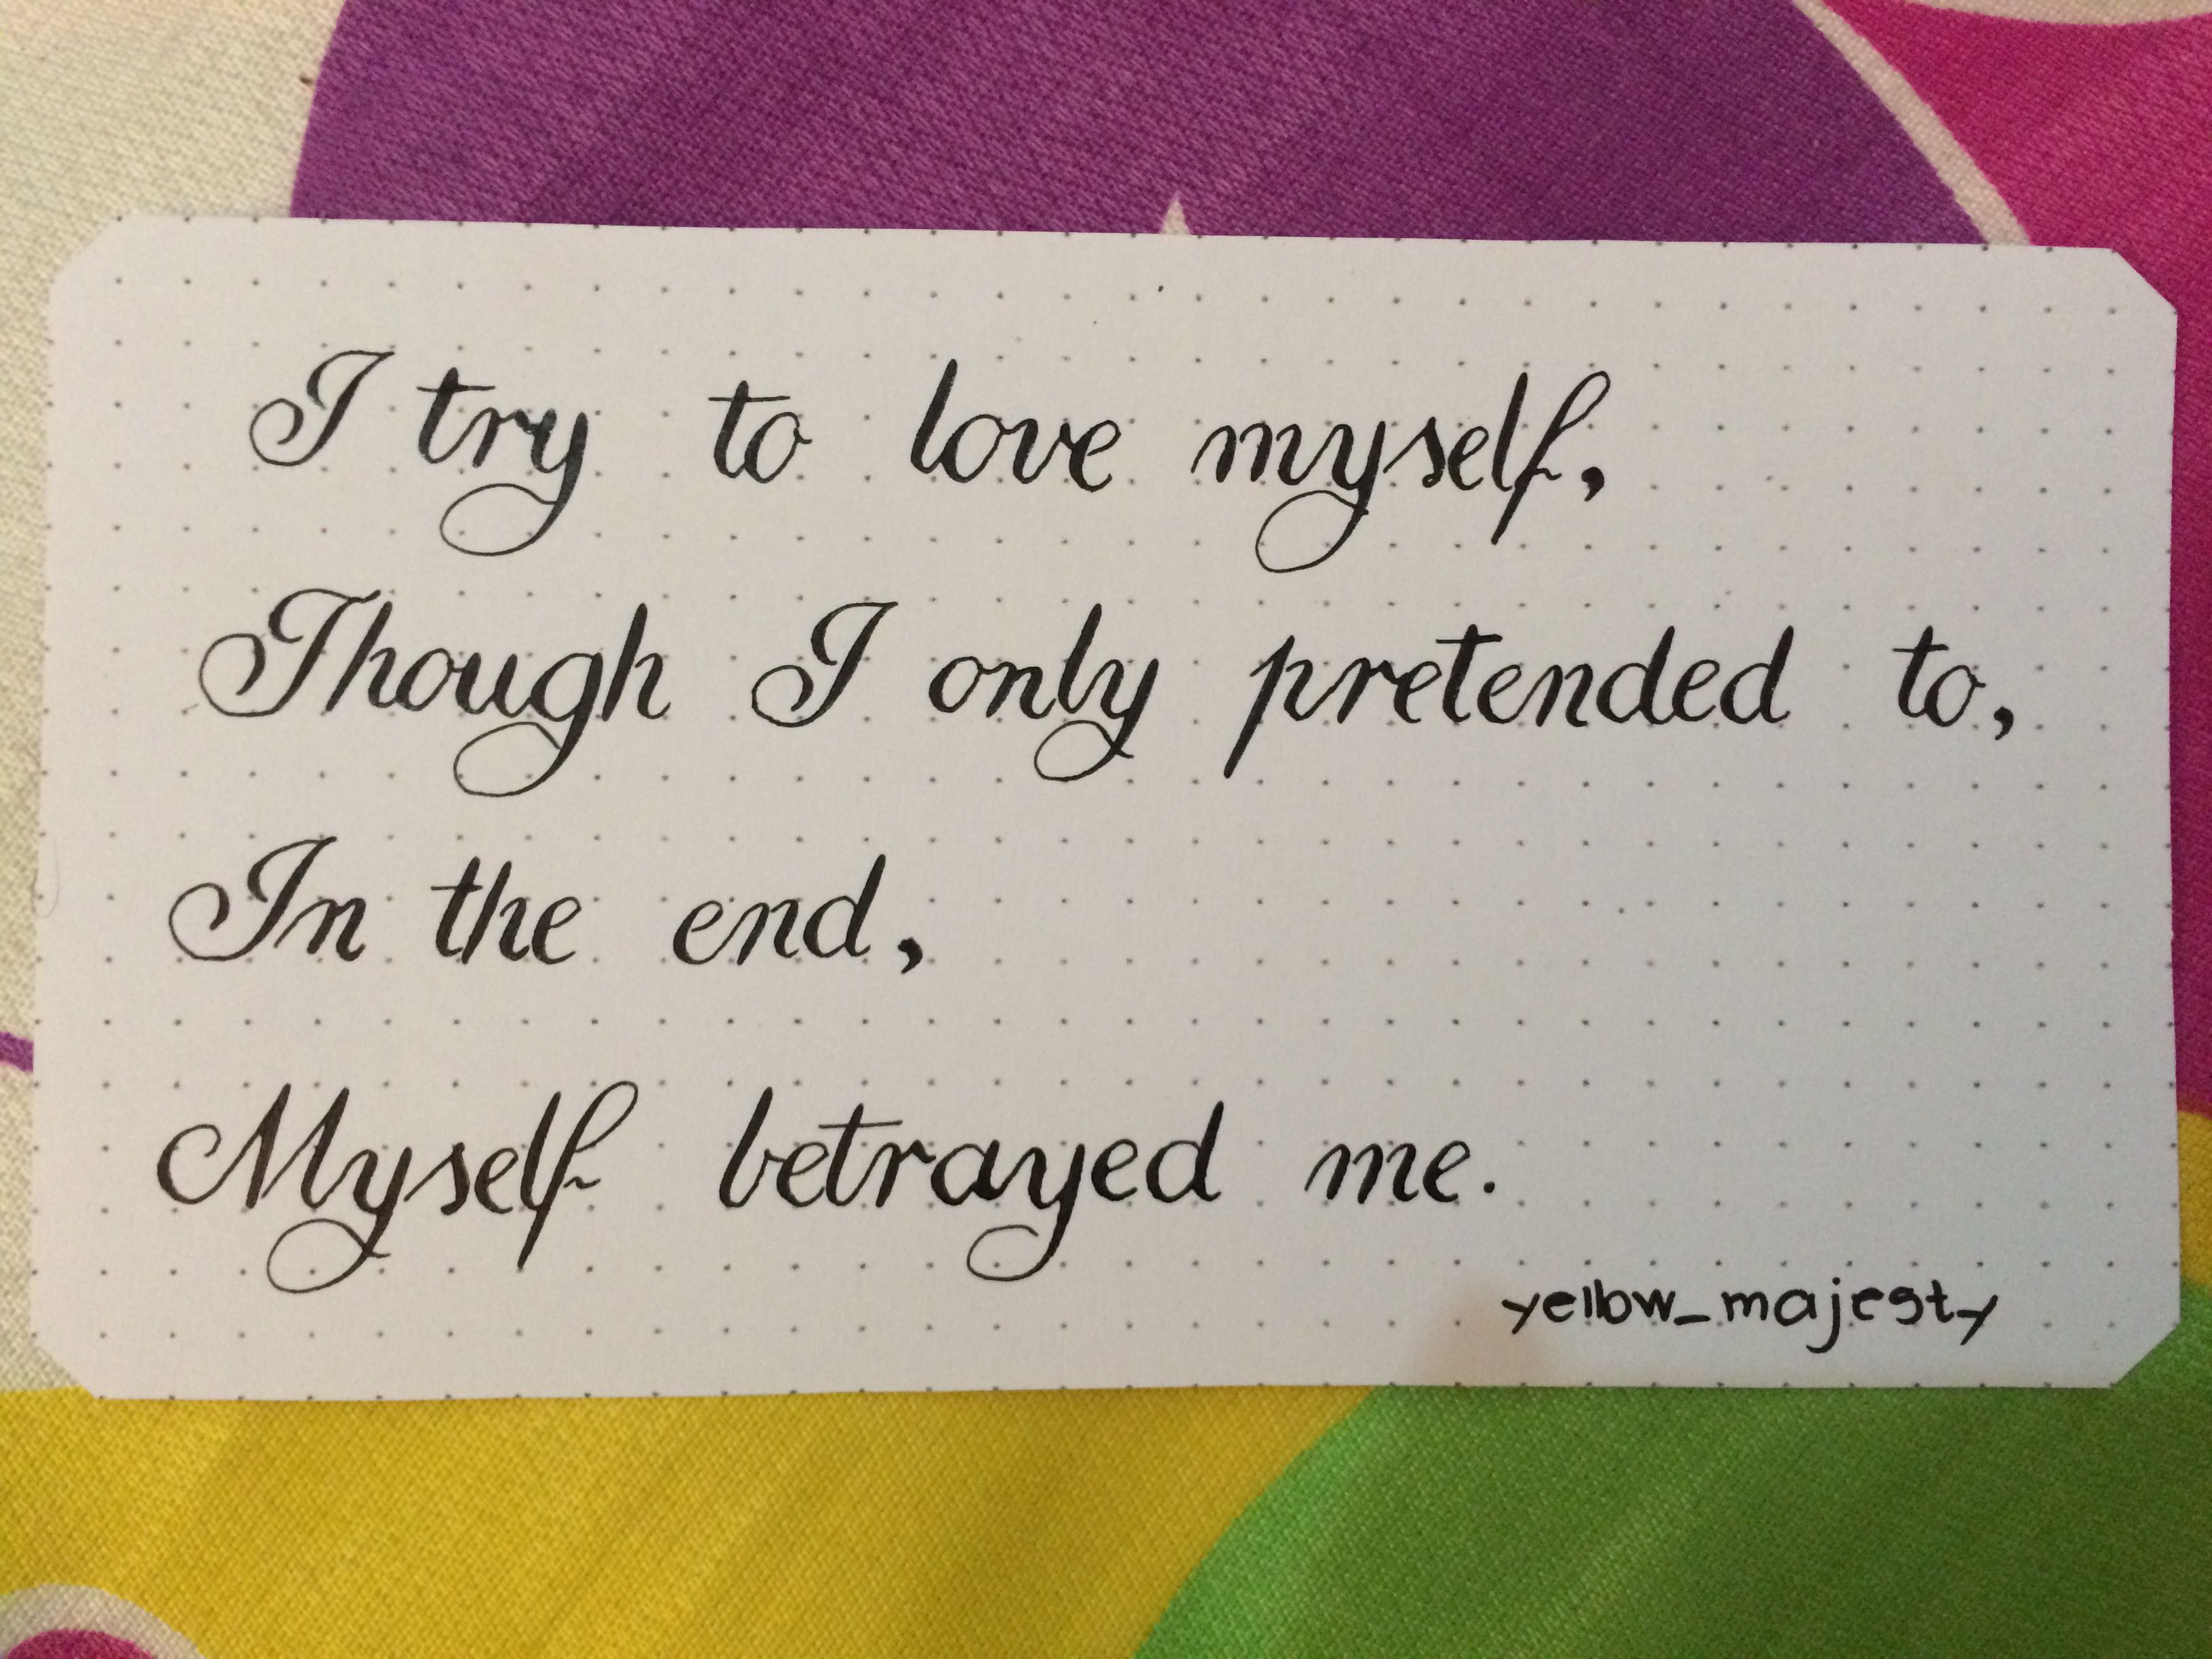 I try to love myself,
Though I only pretended to,
In the end,
Myself betrayed me.
yellow_majesty